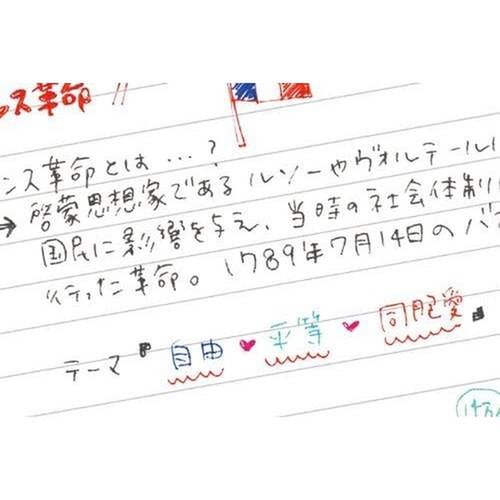 ンス革命 //
ンス革命とは…？
→ 啓蒙思想家であるルソーやヴォルテール
国民に影響を与え、当時の社会体制
行った革命。1789年7月14日のバ
テーマ 自由 ♥ 平等 ♥ 同胞愛